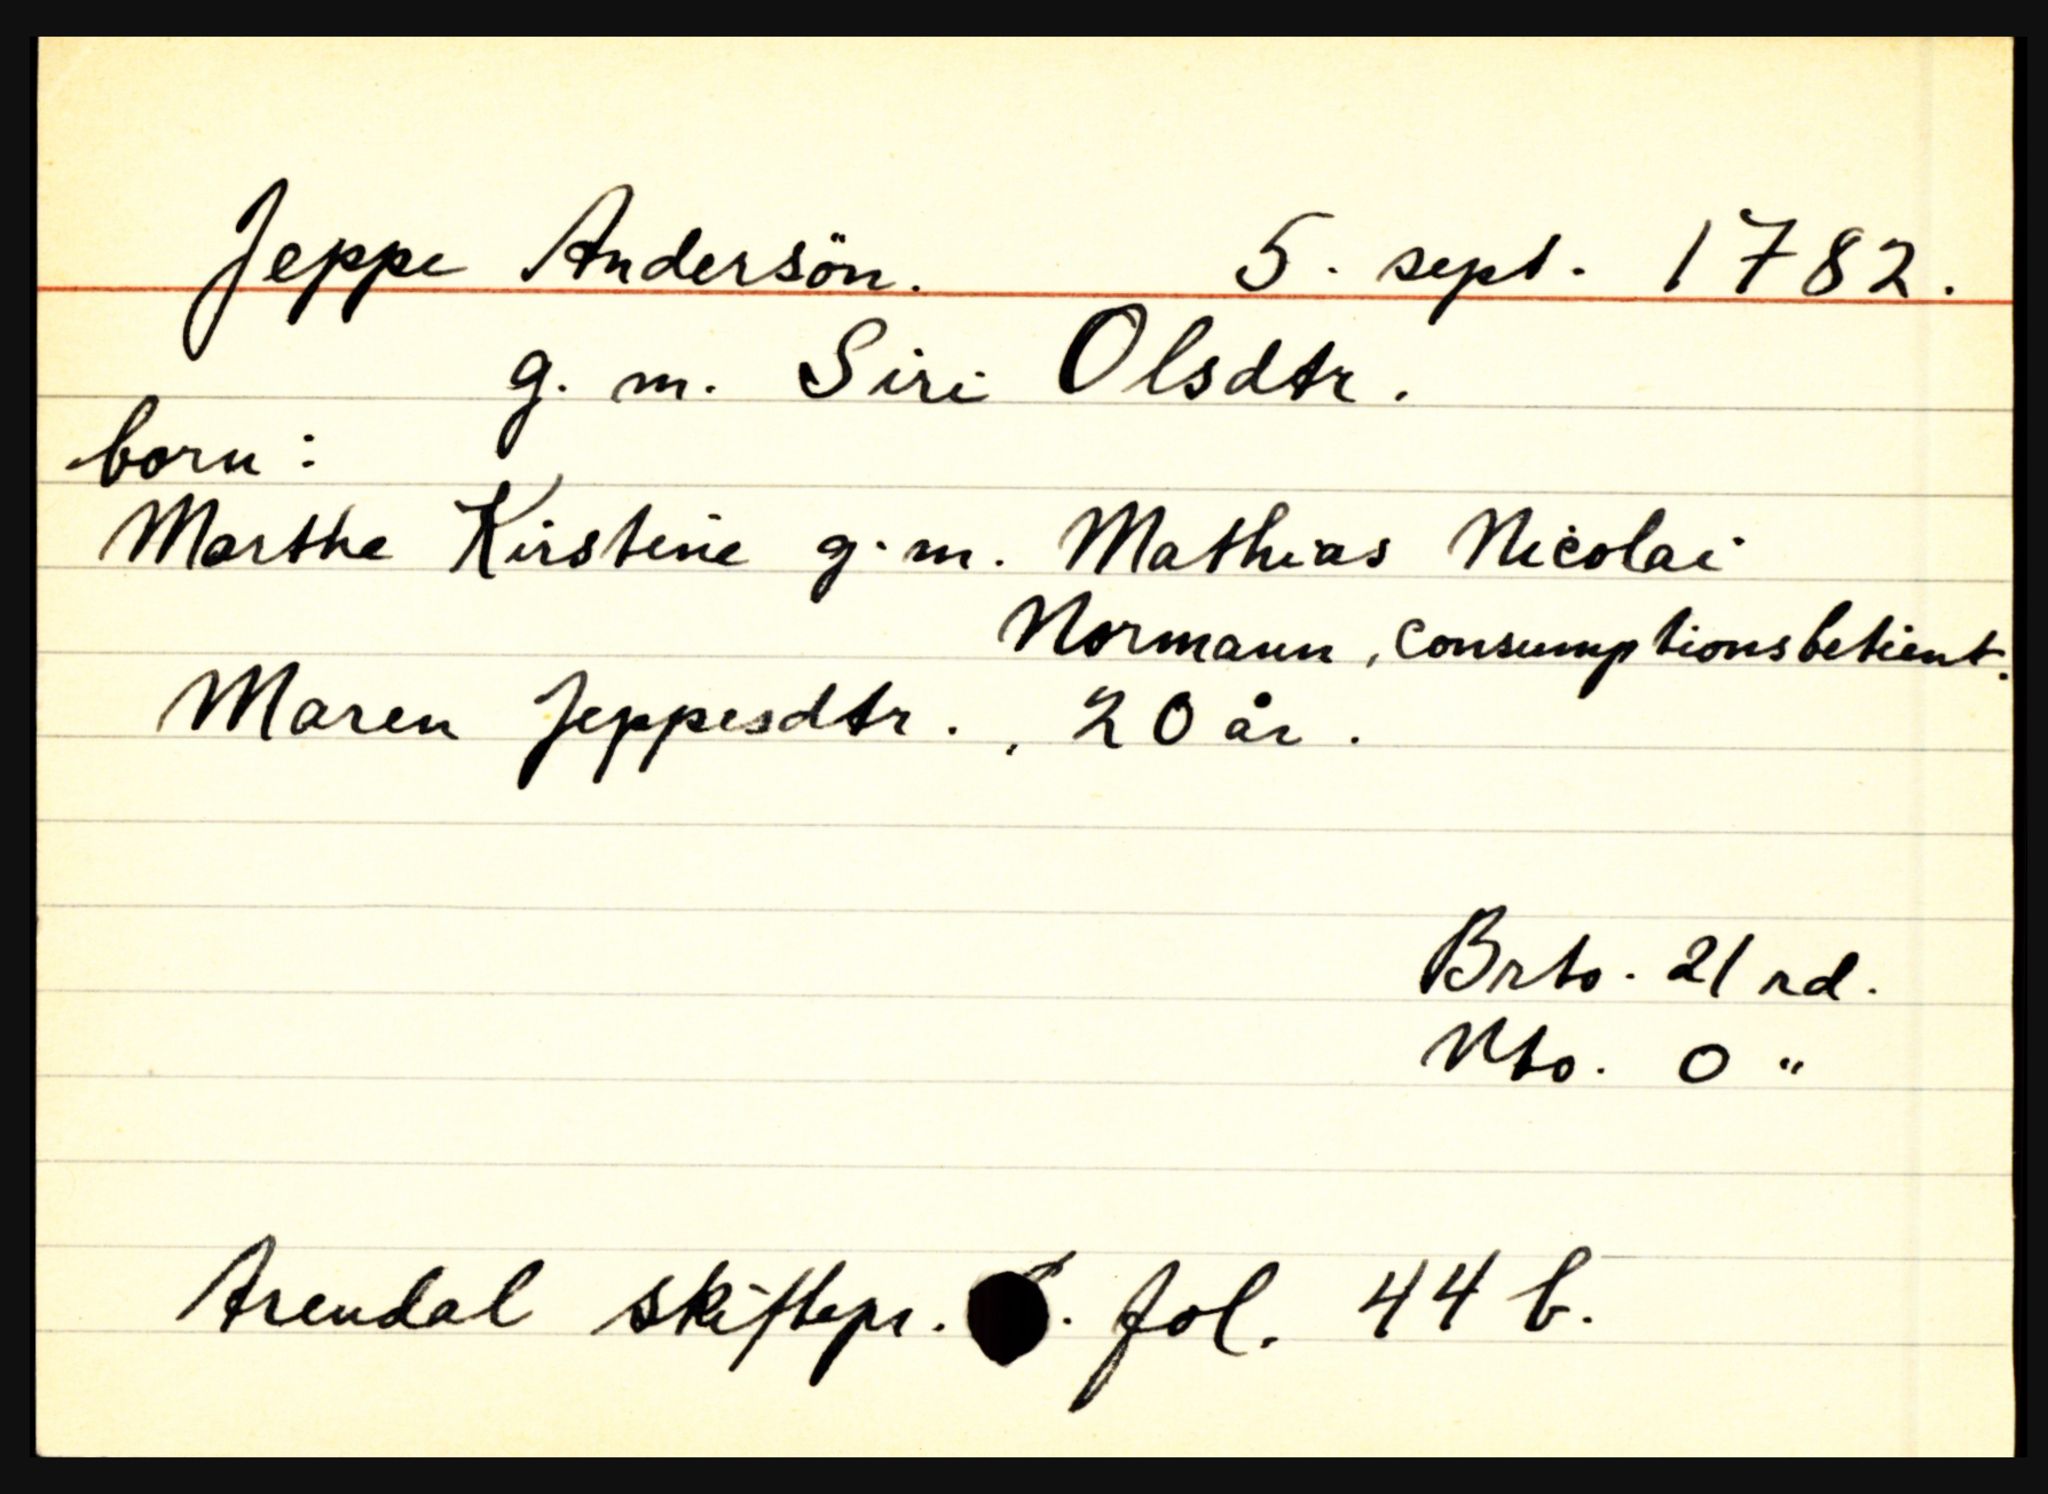 Jeppe Andersön. 5. sept. 1782.
g. m. Siri Olsdtr.
born:
Marthe Kirstine g.m. Mathias Nicolai
Normann, consumptionsbetient.
Maren Jeppesdtr., 20 år.
Brto. 21 rd.
Nto. 0 "
Arendal skiftepr. . fol. 44 b.